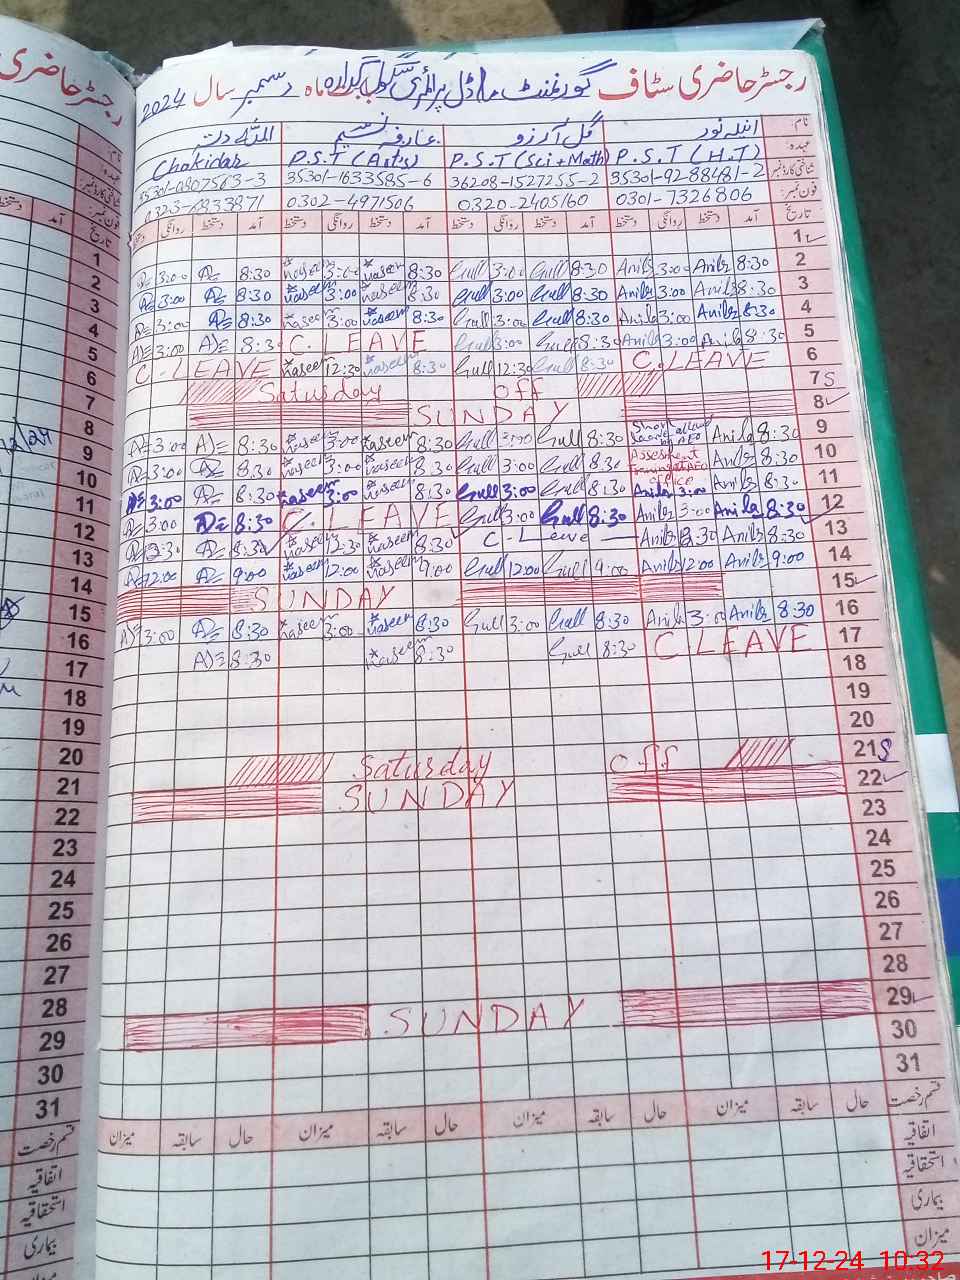 رجسٹر حاضری سٹاف گورنمنٹ ماڈل پرائمری سکول بابت ماہ دسمبر سال 2024
نام: انیلہ نور گل آرزو عارفہ نسیم
عہدہ: P.S.T (H.T) P.S.T (Sci+Math) P.S.T (Arts) Chokidar
شناختی کارڈ نمبر 35301-9288481-2 36208-1527255-2 35301-1633585-6
فون نمبر: 0301-7326806 0320-2405160 0302-4971506
تاریخ آمد دستخط روانگی دستخط آمد دستخط روانگی دستخط آمد دستخط روانگی دستخط آمد دستخط روانگی
1
2 8:30 Anila 3:00 Anila 8:30 Gull 3:00 Gull 8:30 naseem 3:00 naseem 8:30 3:00
3 8:30 Anila 3:00 Anila 8:30 Gull 3:00 Gull 8:30 naseem 3:00 naseem 8:30 3:00
4 8:30 Anila 3:00 Anila 8:30 Gull 3:00 Gull 8:30 naseem 3:00 naseem 8:30 3:00
5 8:30 Anila 3:00 Anila 8:30 Gull 3:00 Gull C. LEAVE 8:30 3:00
6 C. LEAVE 8:30 Gull 12:30 Gull 8:30 naseem 12:30 naseem C. LEAVE
7 S Saturday Off
8 SUNDAY
9 8:30 Anila 8:30 Gull 3:00 Gull 8:30 naseem 3:00 naseem 8:30 3:00
10 8:30 Anila Assesment 8:30 Gull 3:00 Gull 8:30 naseem 3:00 naseem 8:30 3:00
11 8:30 Anila 3:00 Anila 8:30 Gull 3:00 Gull 8:30 naseem 3:00 naseem 8:30 3:00
12 8:30 Anila 3:00 Anila 8:30 Gull 3:00 Gull C. LEAVE 8:30 3:00
13 8:30 Anila Anila C-Leave 8:30 naseem 12:30 naseem 8:30
14 9:00 Anila 12:00 Anila 9:00 Gull 12:00 Gull 9:00 naseem 12:00 naseem 9:00 12:00
15 SUNDAY
16 8:30 Anila 3:00 Anila 8:30 Gull 3:00 Gull 8:30 naseem 3:00 naseem 8:30 3:00
17 C LEAVE 8:30 Gull 8:30 naseem 8:30
18
19
20
21 S Saturday Off
22 SUNDAY
23
24
25
26
27
28
29 SUNDAY
30
31
قسم رخصت حال سابقہ میزان حال سابقہ میزان حال سابقہ میزان حال سابقہ میزان
اتفاقیہ
استحقاقیہ
بیماری
میزان
رجسٹر حاضری
نام:
عہدہ:
شناختی کارڈ نمبر
فون نمبر:
تاریخ آمد
1
2
3
4
5
6
7
8
9
10
11
12
13
14
15
16
17
18
19
20
21
22
23
24
25
26
27
28
29
30
31
قسم رخصت
اتفاقیہ
استحقاقیہ
بیماری
17-12-24 10:32